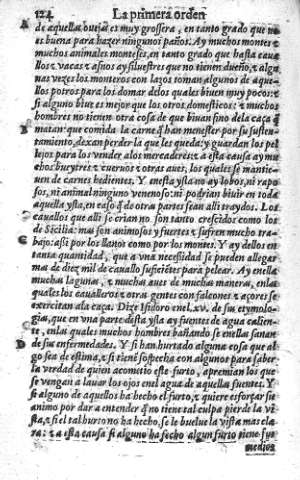 124 La primera orden
de aquellas ovejas es muy grossera, en tanto grado que no
es buena para hazer ningunos paños. Ay muchos montes z
muchos animales monteses, en tanto grado que hasta cava
llos z vacas z asnos ay siluestres que no tienen dueño, z algu
nas vezes los monteros con lazos toman algunos de aque-
llos potros para los domar delos quales biuen muy poco: z
si alguno biue es mejor que los otros domesticos: z muchos
hombres no tienen otra cosa de que biuan sino dela caça q̃
matan: que comida la carne q̃ han menester por su susten-
tamiento, dexan perder la que les queda: y guardan los pel
lejos para los vender alos mercaderes: z a esta causa ay mu
chos bueytres z cueruos z otras aues, los quales se mantie-
nen de carnes hedientes. Y enesta ysla no ay lobos, ni rapo
sos, ni animal ninguno venenoso: ni podrian biuir en toda
aquella ysla, en caso q̃ de otra partes sean alli traydos. Los
cauallos que alli se crian no son tanto crescidos como los
de Sicilia: mas son animosos y fuertes z sufren mucho tra-
bajo: assi por los llanos como por los montes. Y ay dellos en
tanta quantidad, que a vna necessidad se pueden allegar
mas de diez mil de cauallo suficiẽtes para pelear. Ay enella
muchas lagunas, z muchas aues de muchas maneras, enlas
quales los caualleros z otras gentes con falcones z açores se
exercitan ala caça. Dize Isidoro enel .xv. de sus etymolo-
gias, que en vna parte desta ysla ay fuentes de agua calien-
te, enlas quales muchos hombres bañando se enellas sanan
de sus enfermedades. Y si han hurtado alguna cosa que al
go sea de estima, z si tienẽ sospecha con algunos para saber
la verdad de quien acometio este furto, apremian los que
se vengan a lauar los ojos enel agua de aquellas fuentes. Y
si alguno de aquellos ha hecho el furto, z quiere esforçar su
animo por dar a entender q̃ no tiene tal culpa pierde la vi-
sta, z si el tal hurto no ha hecho, se le buelue la vista mas cla
ra: z a esta causa si alguno ha hecho algun furto tiene por
medios